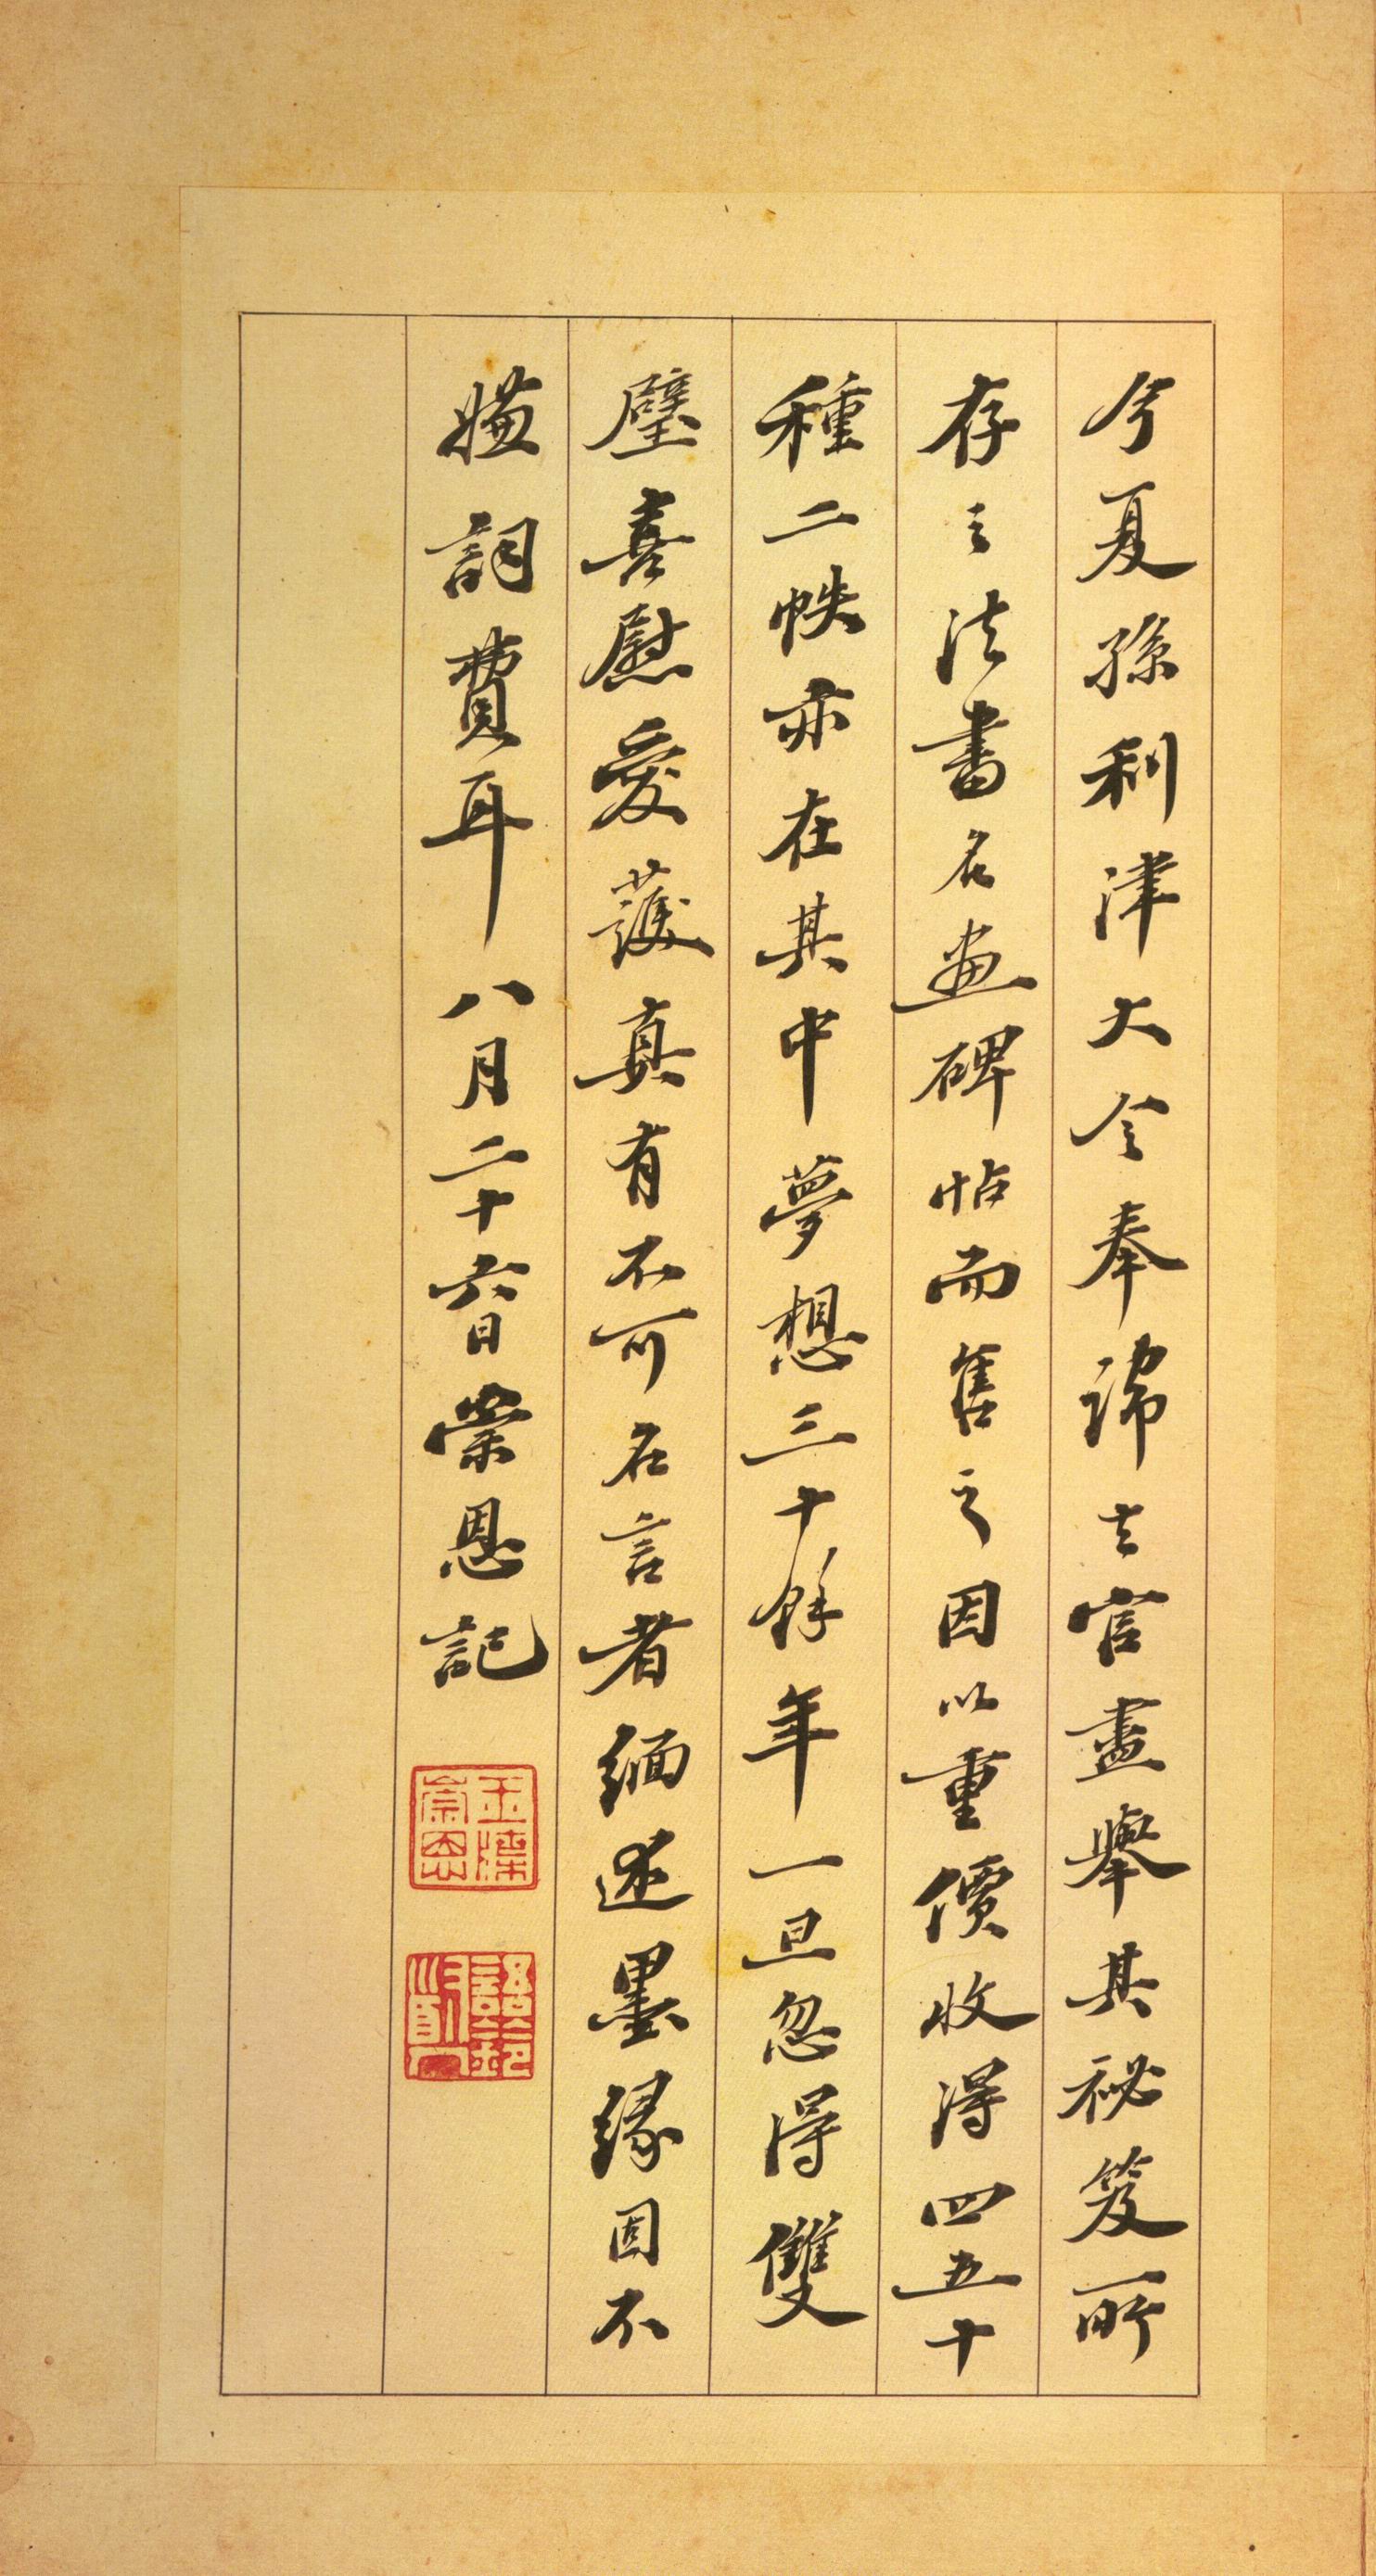 今夏孫利津大令奉諱去官盡舉其祕笈所
存之法書名畫碑帖而售之因以重價收得四五十
種二帙亦在其中夢想三十餘年一旦忽得雙
璧喜慰愛護真有不可名言者緬述墨緣固不
嫌詞費耳八月二十六日崇恩記
玉牒崇恩